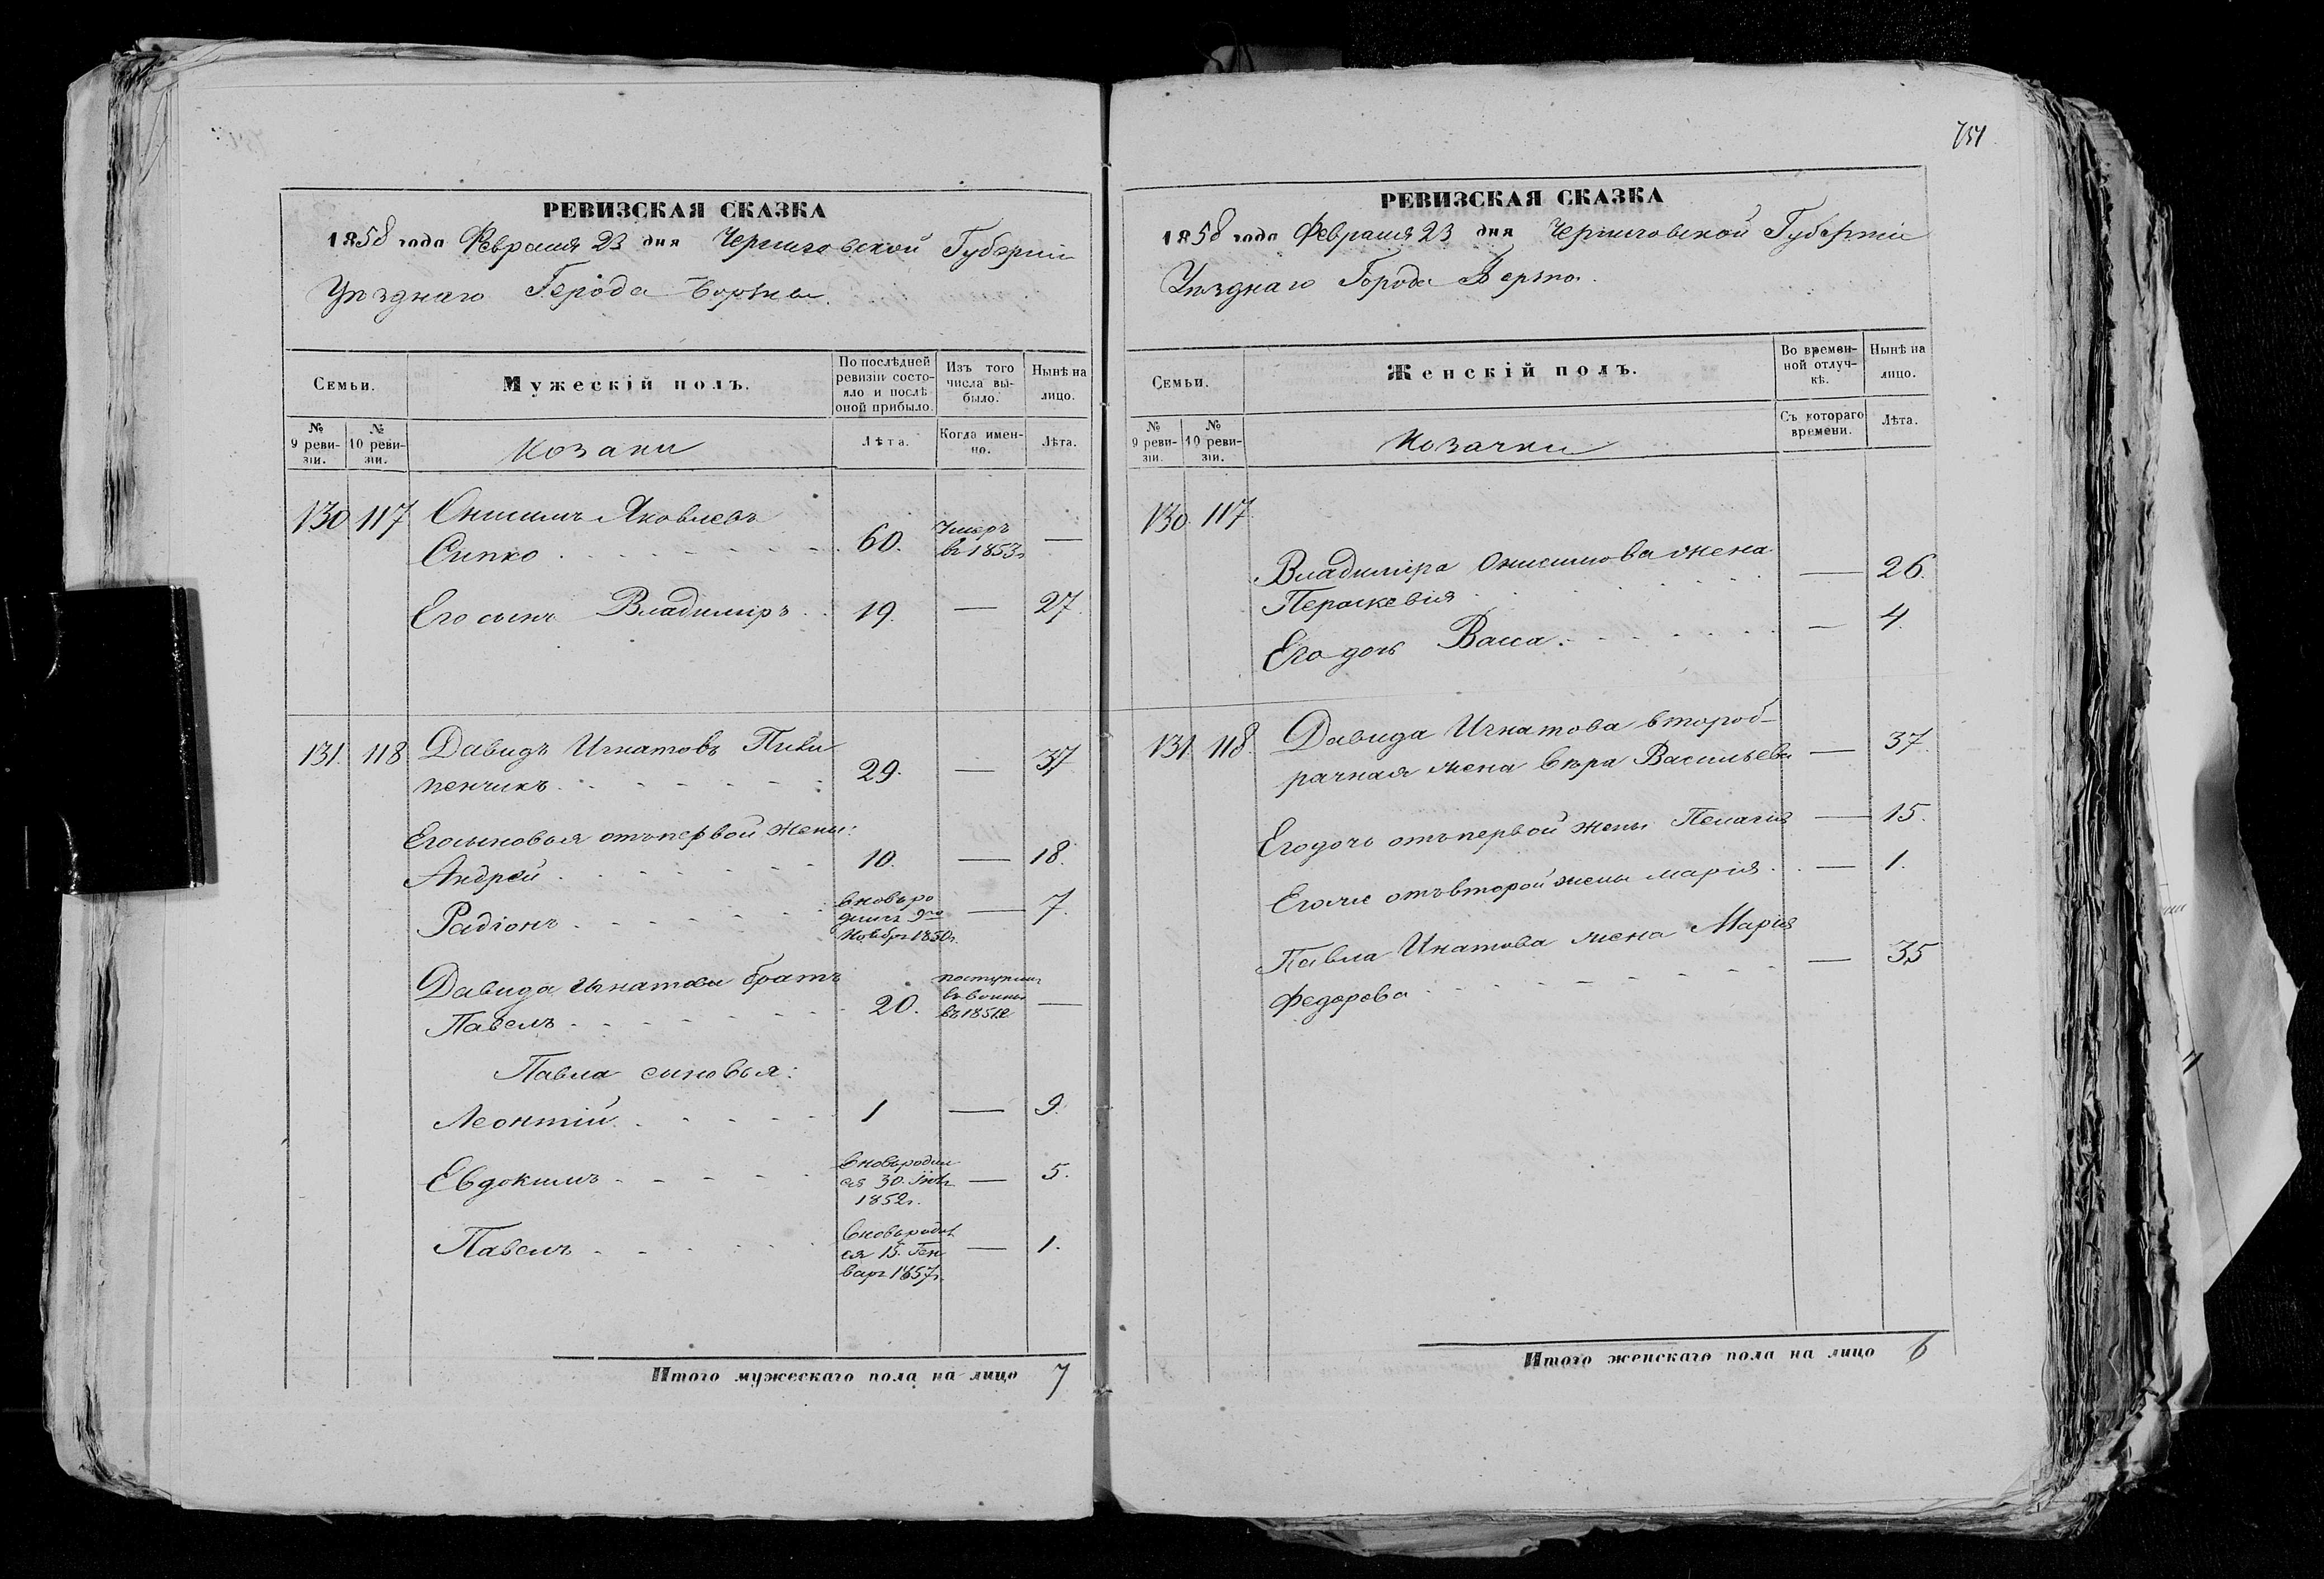 РЕВИЗСКАЯ СКАЗКА
1858 года Февраля 23 дня Черниговской Губерніи
Уѣзднаго Города Борзны.
Семьи.
Мужескій полъ.
По послѣдней
ревизіи состо-
яло и послѣ
оной прибыло.
Изъ того
числа вы-
было.
Нынѣ на
лицо.
№
9 реви-
зіи.
№
10 реви-
зіи.
Козаки
Лѣта.
Когда имен-
но.
Лѣта.
130 117 Онисимъ Яковлевъ
Сипко 60. Умеръ
въ 1853г —
Его сынъ Владимиръ 19. — 27.
131. 118 Давидъ Игнатовъ Пиви
пенчикъ 29. — 37
Его сыновья отъ первой жены:
Андрей 10. — 18.
Радіонъ вновь ро
дился 9го
Ноября 1850г. — 7.
Давида Игнатова братъ
Павелъ 20. поступилъ
въ
въ 185 —
Павла сыновья:
Леонтій 1 — 9.
Евдокимъ вновь родил
ся 30.
1852г. — 5.
Павелъ вновь родил
ся 15. Ген
варя 1857г. — 1.
Итого мужескаго пола на лицо 7
751
РЕВИЗСКАЯ СКАЗКА
1858 года Февраля 23 дня Черниговской Губерніи
Уѣзднаго Города
Семьи.
Женскій полъ.
Во времен-
ной отлуч-
кѣ.
Нынѣ на
лицо.
№
9 реви-
зіи.
№
10 реви-
зіи.
Козачки
Съ котораго
времени.
Лѣта.
130. 117.
Владиміра Онисимова жена
Параскевія — 26.
Его дочь Васса — 4.
131. 118. Давида Игнатова второб-
рачная жена Вѣра Васильева — 37.
Его дочь отъ первой жены Пелагія — 15.
Его же отъ второй жены Марія — 1.
Павла Инатова жена Марія
Федорова — 35
Итого женскаго пола на лицо 6